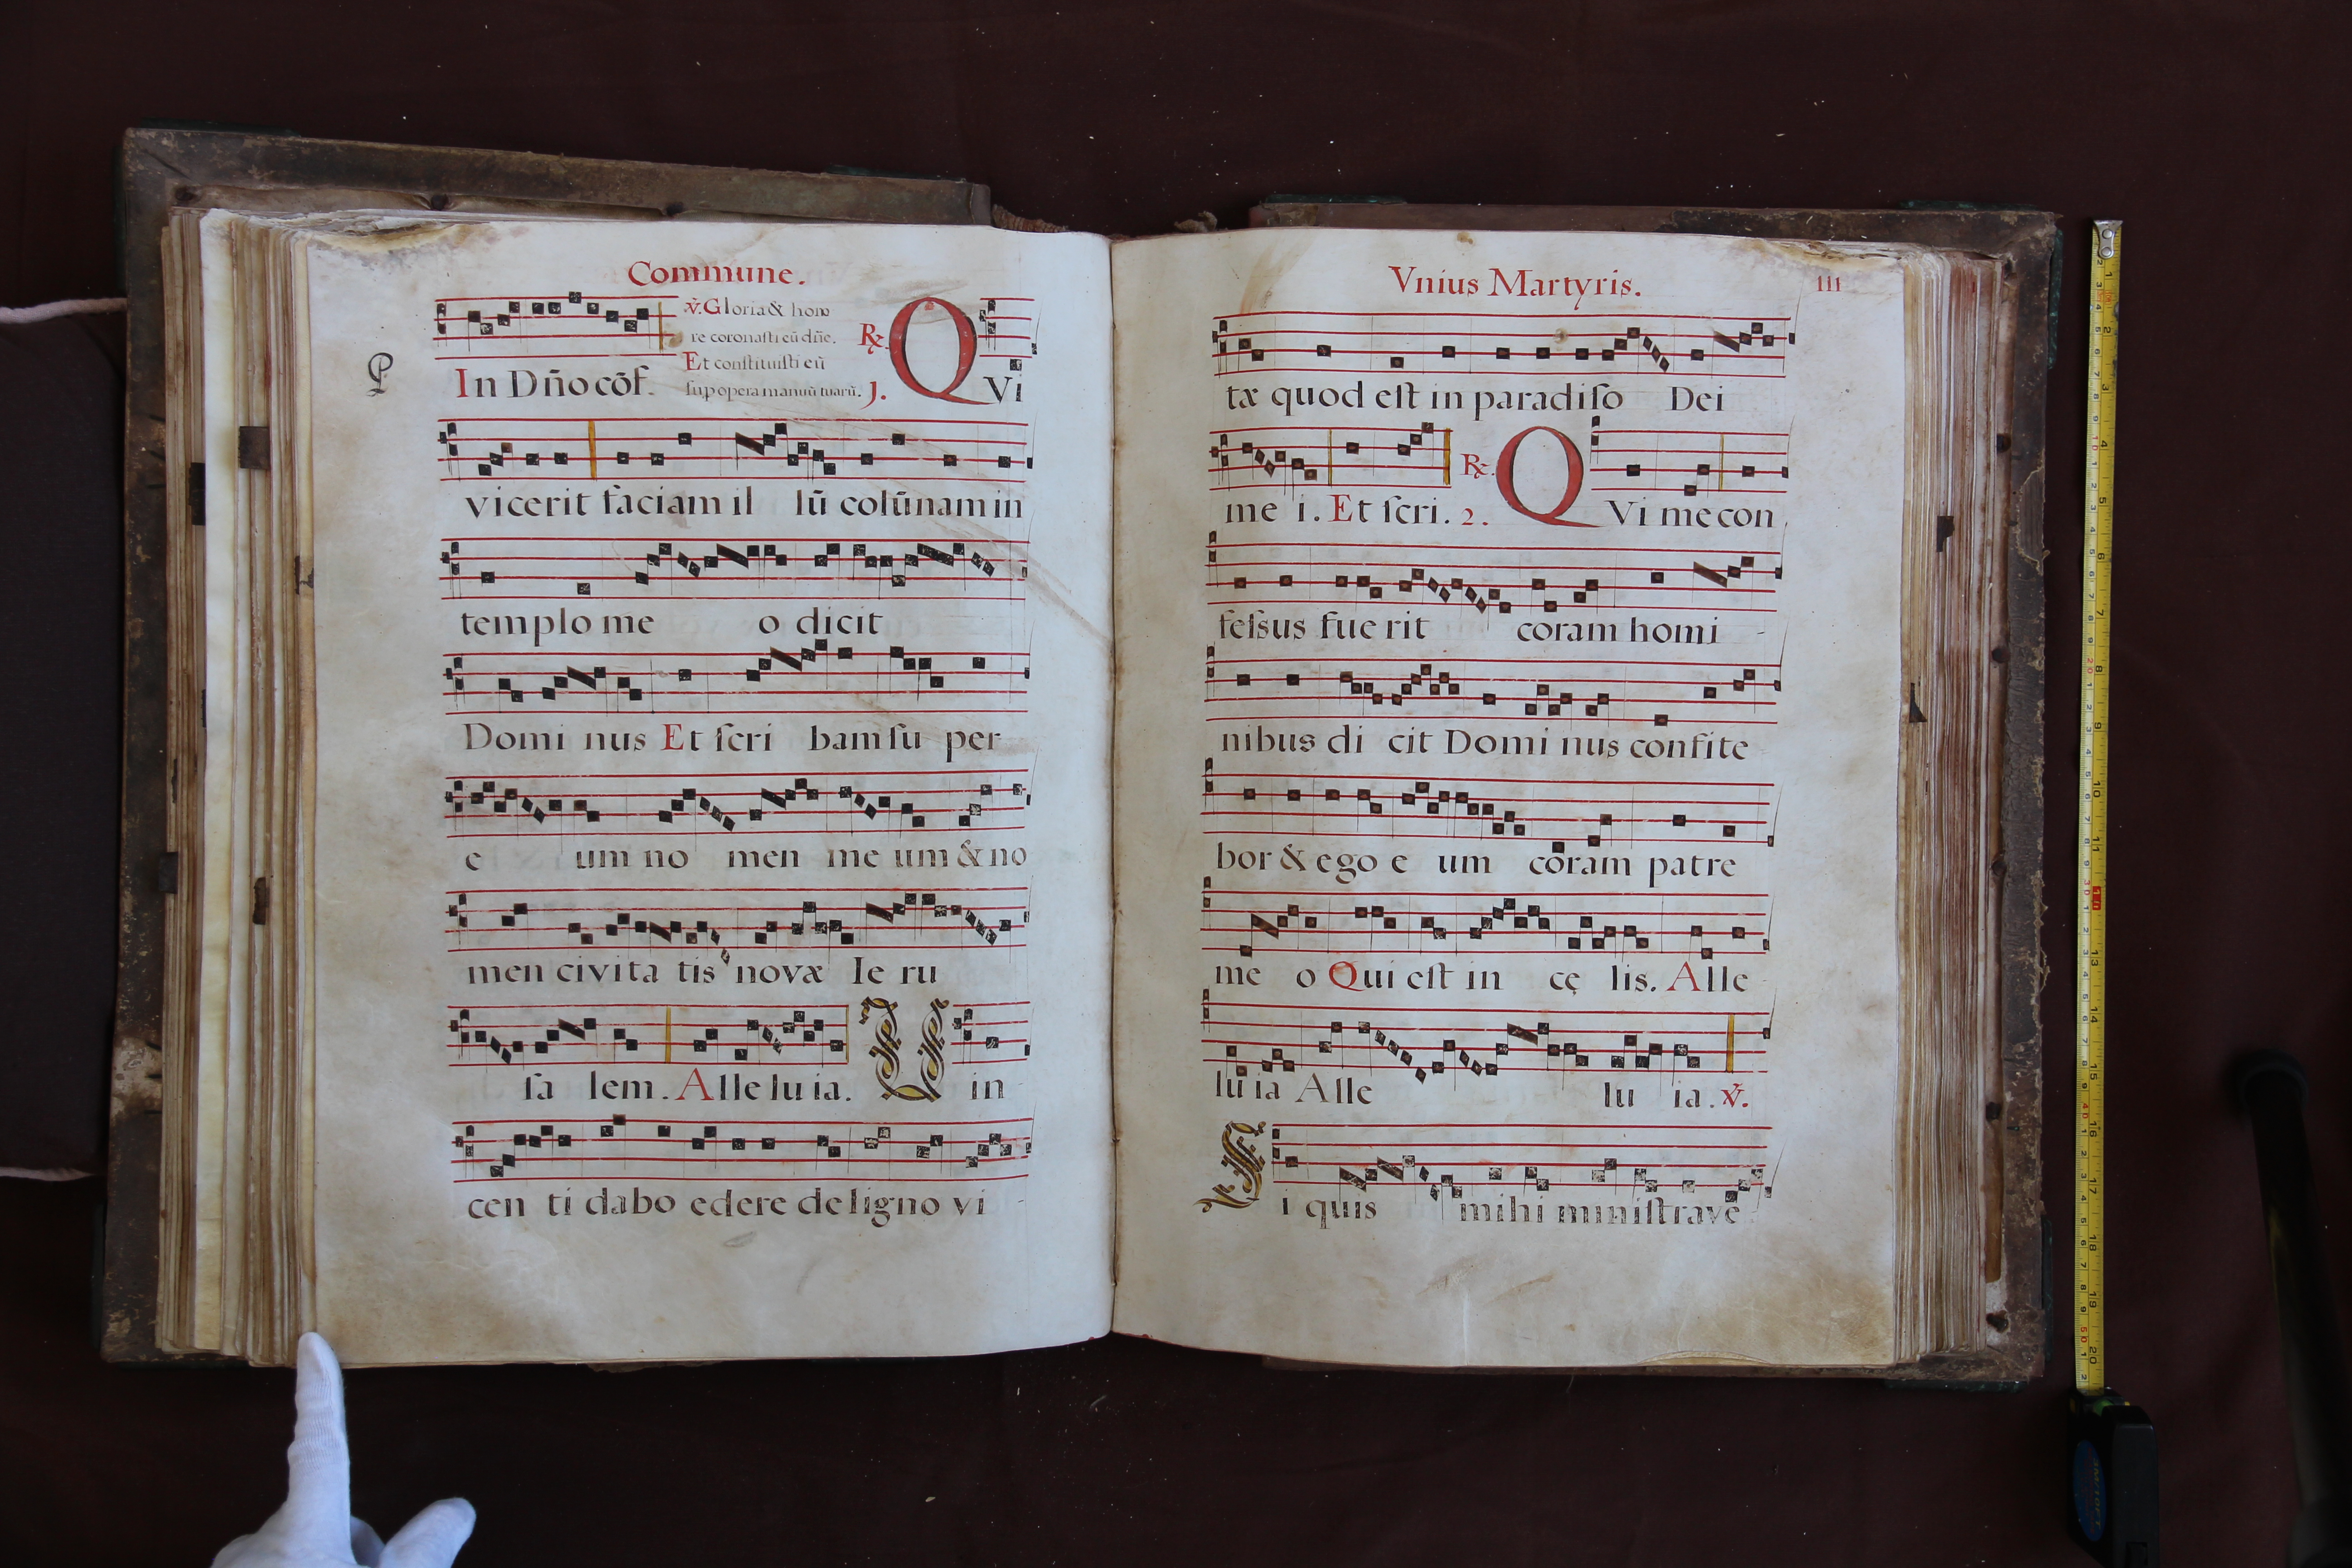 Commune.
℣. Gloria & hono
re coronasti eū dn̄e.
Et constituisti eū
In Dn̄o cōf. sup opera manuū tuarū. J. ℟. QVi
vicerit faciam il lū colūnam in
templo me o dicit
Domi nus Et scri bam su per
e um no men me um & no
men civita tis novæ Ie ru
sa lem. Alle lu ia. V in
cen ti dabo edere de ligno vi
Vnius Martyris. 111
tæ quod est in paradiso Dei
me i. Et scri. 2. ℟. QVi me con
fessus fue rit coram homi
nibus di cit Domi nus confite
bor & ego e um coram patre
me o Qui est in cę lis. Alle
lu ia Alle lu ia. ℣.
S i quis mihi ministrave